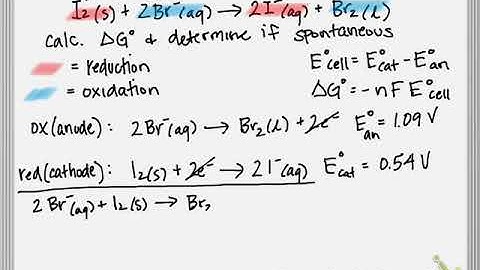 I₂(s) + 2Br⁻(aq) → 2I⁻(aq) + Br₂(l)
calc. ΔG° & determine if spontaneous
= reduction E°cell = E°cat - E°an
= oxidation ΔG° = -nFE°cell
ox(anode): 2Br⁻(aq) → Br₂(l) + 2e⁻ E°an = 1.09 V
red(cathode): I₂(s) + 2e⁻ → 2I⁻(aq) E°cat = 0.54 V
2Br⁻(aq) + I₂(s) → Br₂